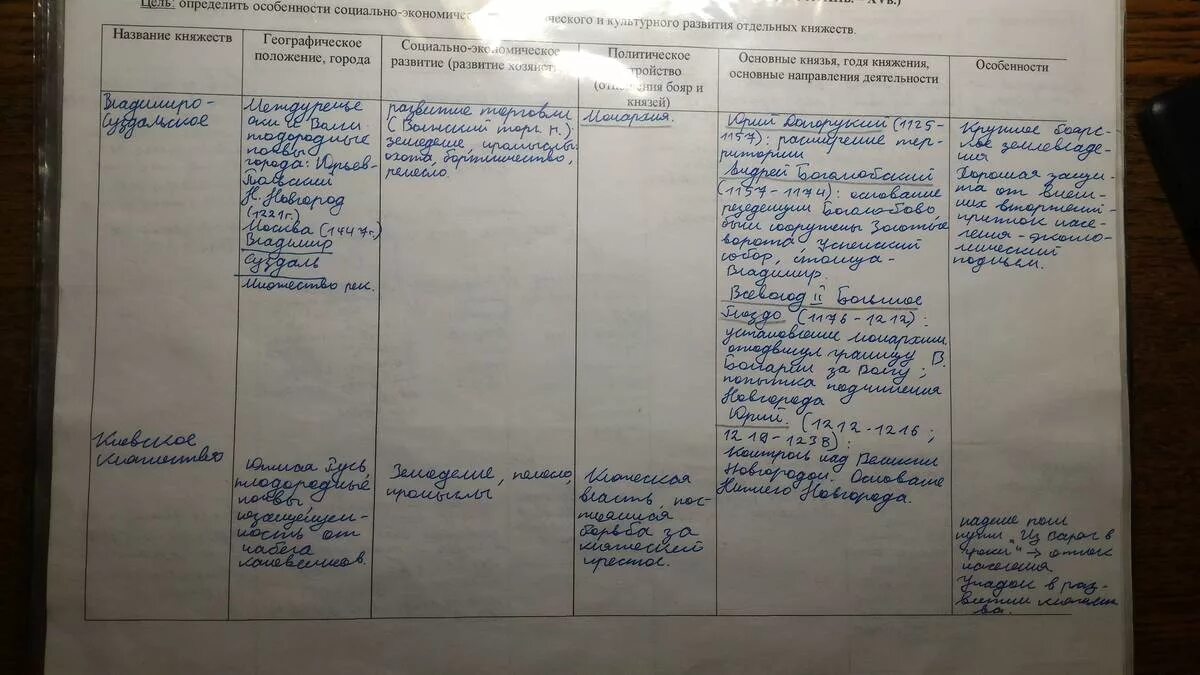 Цель: определить особенности социально-экономичес ческого и культурного развития отдельных княжеств.
Название княжеств
Географическое
положение, города
Социально-экономическое
развитие (развитие хозяйст
Политическое
стройство
(отношения бояр и
князей)
Основные князья, годя княжения,
основные направления деятельности
Особенности
Владимиро-
Суздальское
Междуречье
Оки и Волги.
плодородные
почвы
города: Юрьев-
Польский
Н. Новгород
(1221г.)
Москва (1447г.)
Владимир
Суздаль
Множество рек.
развитие торговли
(Волжский торг. п.)
земледелие, промыслы:
охота, бортничество,
ремесло.
Монархия.
Юрий Долгорукий (1125-
1157): расширение тер-
ритории
Андрей Боголюбский
(1157-1174): основание
резеденции Боголюбово,
были сооружены Золотые
ворота, Успенский
собор, столица-
Владимир.
Всеволод II Большое
Гнездо (1176-1212):
установление монархии
отодвинул границу В.
Болгарии за Волгу;
попытка подчинения
Новгорода
Юрий. (1212-1216;
1218-1238):
Контроль над Великим
Новгородом. Основание
Нижнего Новгорода.
Крупное боярс-
кое землевладе-
ния
Хорошая защи-
та от внеш-
них вторжений-
приток насе-
ления-эконо-
мический
подъем.
Киевское
княжество
Южная Русь,
плодородные
почвы,
незащищен-
ность от
набега
кочевников.
Земледелие, ремесло,
промыслы
Княжеская
власть, пос-
тоянная
борьба за
княжеский
престол.
падение
пути "Из варяг в
греки" → отток
населения
Упадок в раз-
витии княжест-
ва.